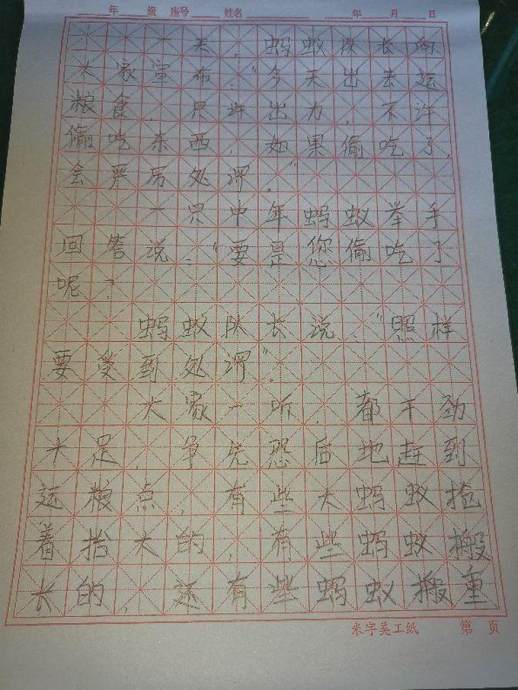 年 级 座号 姓名 年 月 日
一天,蚂蚁队长向
大家宣布,“今天出去运
粮食,只许出力,不许
偷吃东西,如果偷吃了,
会严厉处罚。”
一只中年蚂蚁举手
回答说:“要是您偷吃了
呢?
蚂蚁队长说:“照样
要受到处罚”。
大家一听,都干劲
十足,争先恐后地赶到
运粮点,有些大蚂蚁抢
着抬大的,有些蚂蚁搬
长的,还有些蚂蚁搬重
米字美工纸 第 页